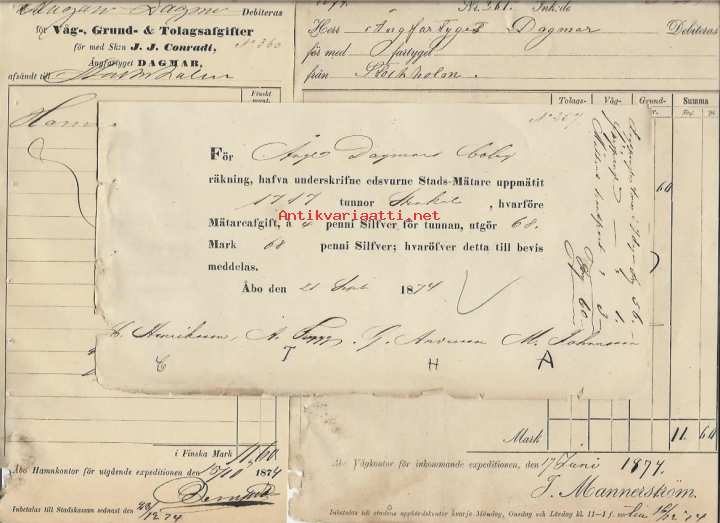 Debiteras
för Våg-, Grund- & Tolagsafgifter
för med Sk:n J. J. Conradt, N:o 360
Ångfartyget DAGMAR,
afsändt till Stockholm
Finskt
mynt.
N:o 361. Ink. de
Herr Ångfartyget Dagmar Debiteras
för med fartyget
från Stockholm
Tolags- Våg- Grund- Summa
60
N:o 367
För Ång. Dagmars
räkning, hafva underskrifne edsvurne Stads-Mätare uppmätit
1717 tunnor , hvarföre
Mätareafgift, à 4 penni Silfver för tunnan, utgör 68.
Mark 68 penni Silfver; hvaröfver detta till bevis
meddelas.
Åbo den 21 1874
Antikvariaatti.net
C. Henriksson, A. G. Andersson M. Johansson
T H A
i Finska Mark 11,60
Åbo Hamnkontor för utgående expeditionen den 15/10 1874
Inbetalas till Stadskassan sednast den 20/12 74
Mark 11 60
Åbo Vågkontor för inkommande expeditionen, den 17 Juni 1874.
J. Mannerström.
Inbetalas till stadens uppbördskontor hvarje Måndag, Onsdag och Lördag kl. 11—1